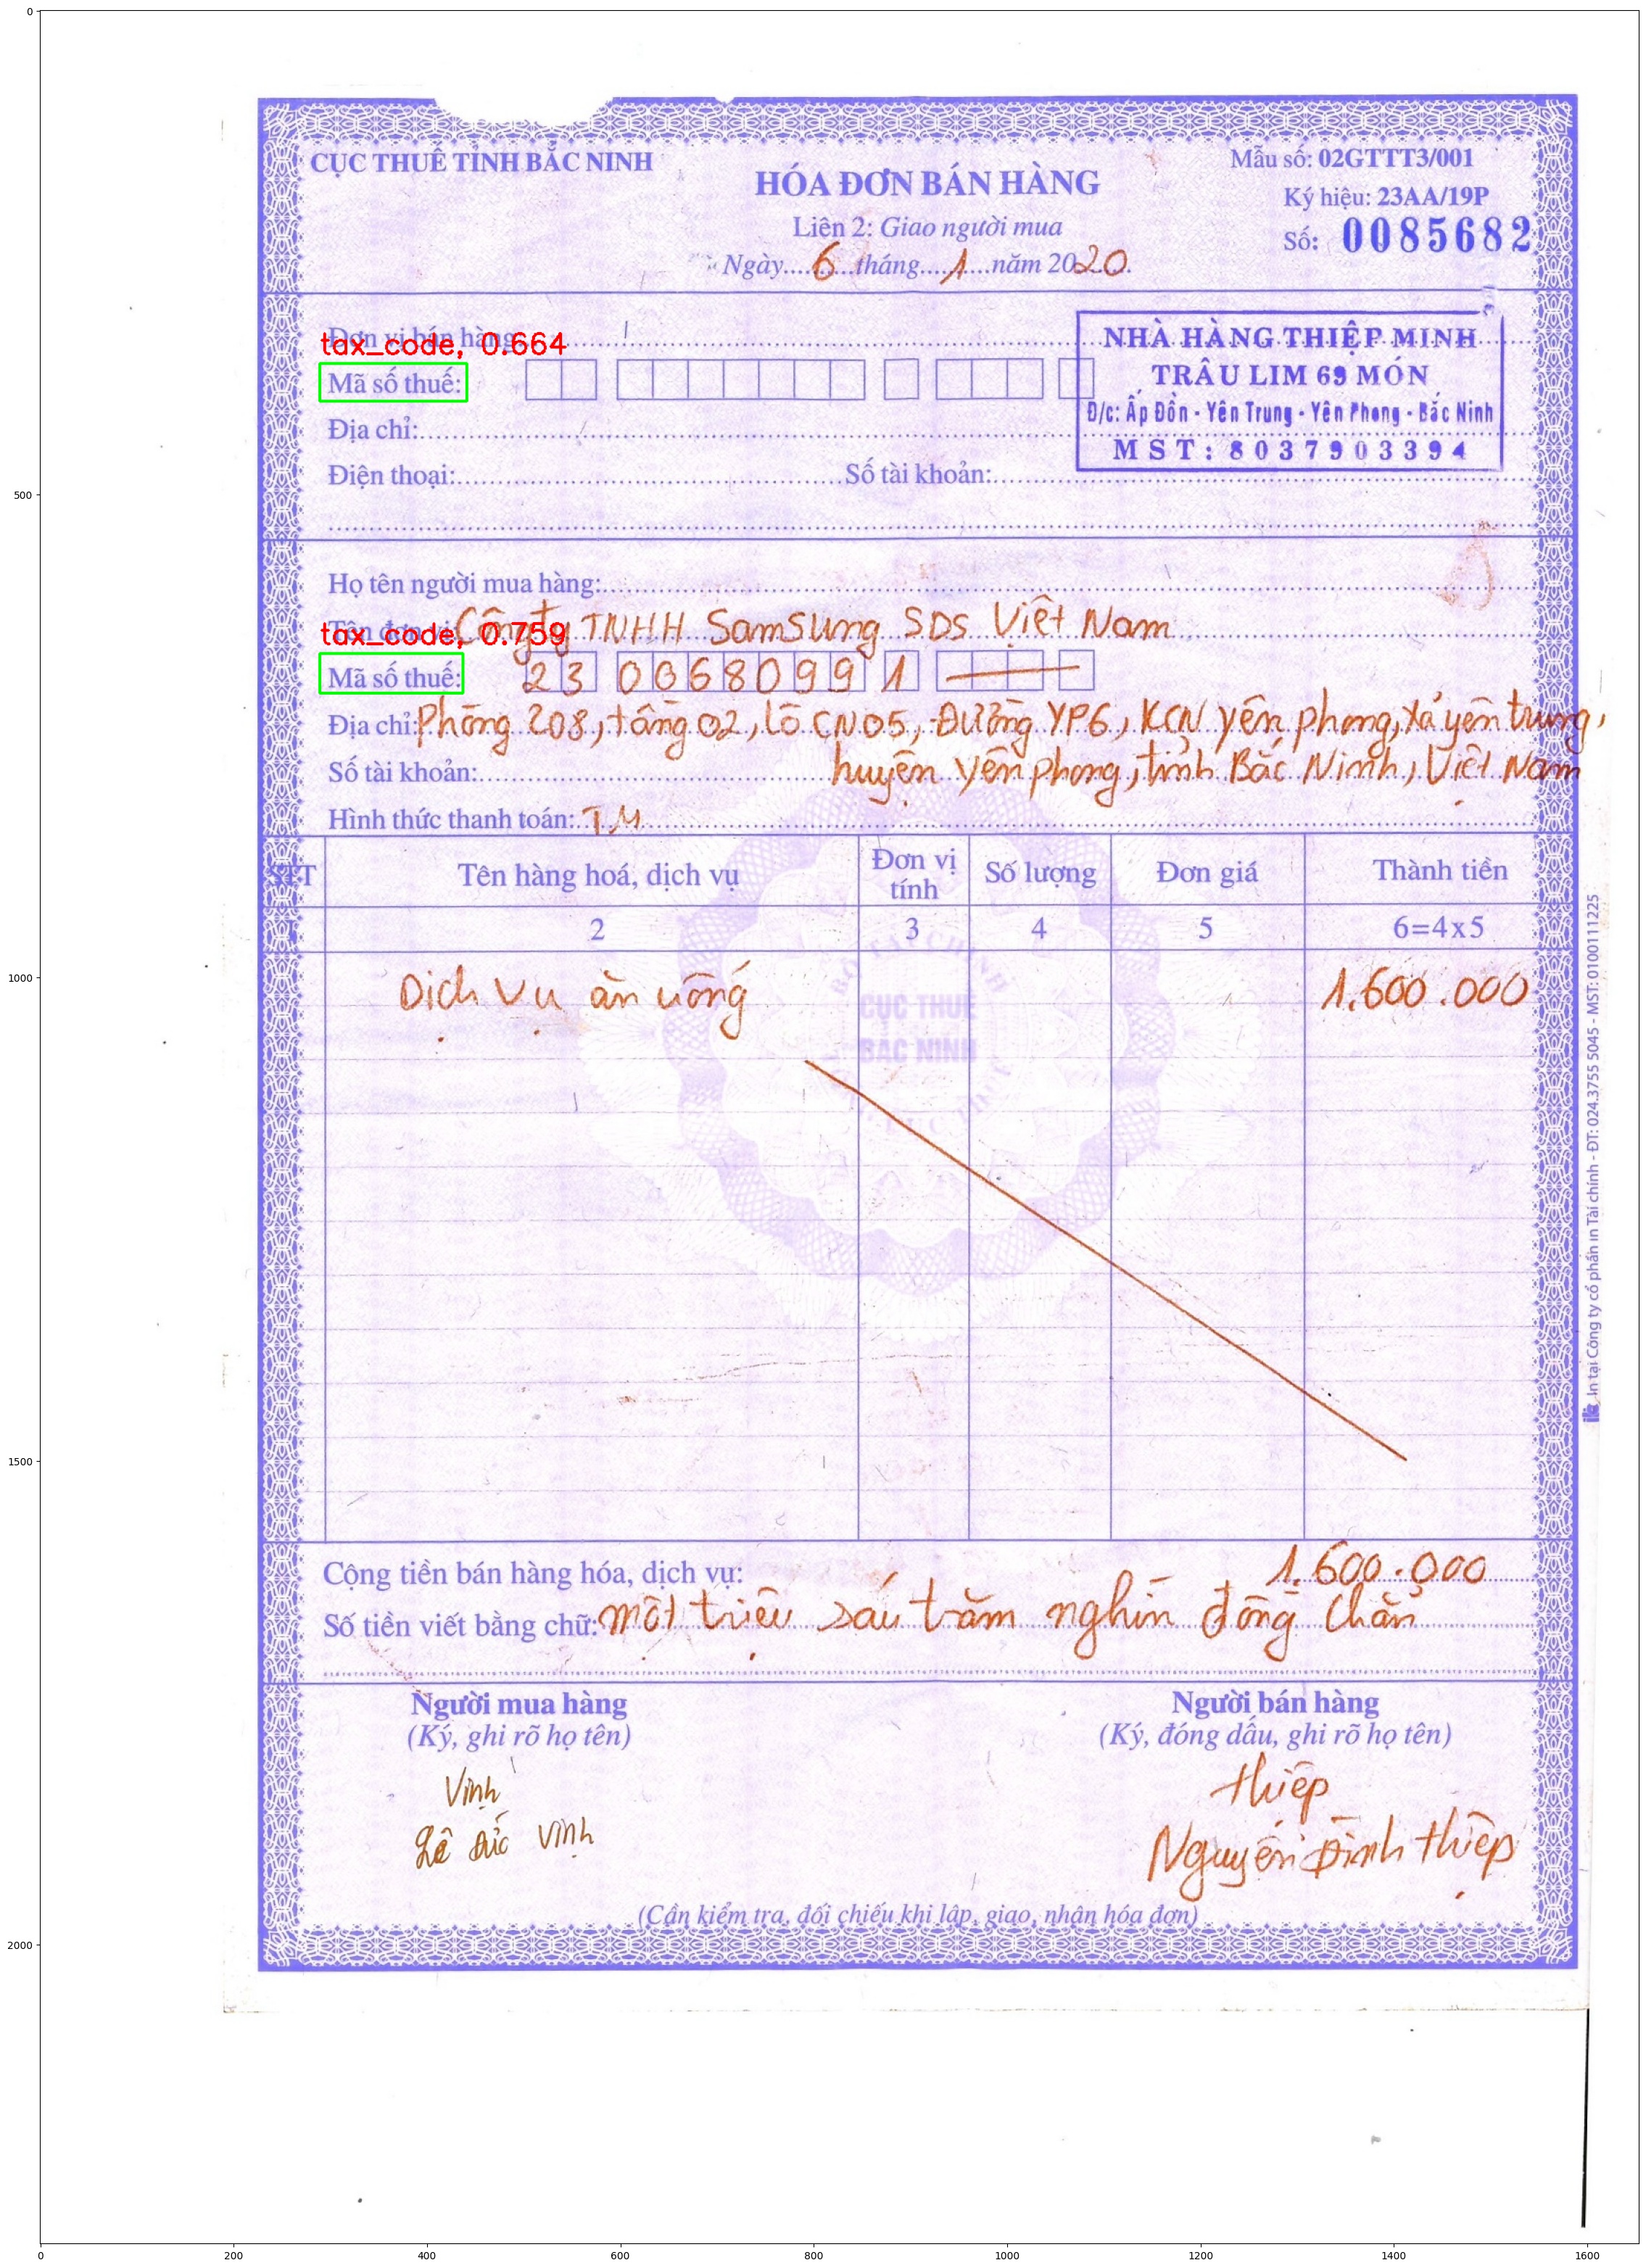 CỤC THUẾ TỈNH BẮC NINH
HÓA ĐƠN BÁN HÀNG
Liên 2: Giao người mua
Ngày....6....tháng....1....năm 2020
Mẫu số: 02GTTT3/001
Ký hiệu: 23AA/19P
Số: 0085682
Đơn vị bán hàng
tax_code, 0.664
Mã số thuế:
Địa chỉ:
Điện thoại: Số tài khoản:
NHÀ HÀNG THIỆP MINH
TRÂU LIM 69 MÓN
Đ/c: Ấp Đồn - Yên Trung - Yên Phong - Bắc Ninh
MST: 8037903394
Họ tên người mua hàng:
Tên đơn vị: Công ty TNHH SamSung SDS Việt Nam
tax_code, 0.759
Mã số thuế: 23 0068099 1
Địa chỉ: Phòng 208, tầng 02, lô CN05, Đường YP6, KCN yên phong, xã yên trung,
huyện yên phong, tỉnh Bắc Ninh, Việt Nam
Số tài khoản:
Hình thức thanh toán: TM
STT Tên hàng hoá, dịch vụ Đơn vị tính Số lượng Đơn giá Thành tiền
1 2 3 4 5 6=4x5
Dịch vụ ăn uống 1.600.000
CỤC THUẾ
BẮC NINH
Cộng tiền bán hàng hóa, dịch vụ: 1.600.000
Số tiền viết bằng chữ: một triệu sáu trăm nghìn đồng chẵn
Người mua hàng
(Ký, ghi rõ họ tên)
Vinh
Lê Đức Vinh
Người bán hàng
(Ký, đóng dấu, ghi rõ họ tên)
thiệp
Nguyễn Đình thiệp
(Cần kiểm tra, đối chiếu khi lập, giao, nhận hóa đơn)
In tại Công ty cổ phần in Tài chính - ĐT: 024.3755 5045 - MST: 0100111225
0
500
1000
1500
2000
0 200 400 600 800 1000 1200 1400 1600